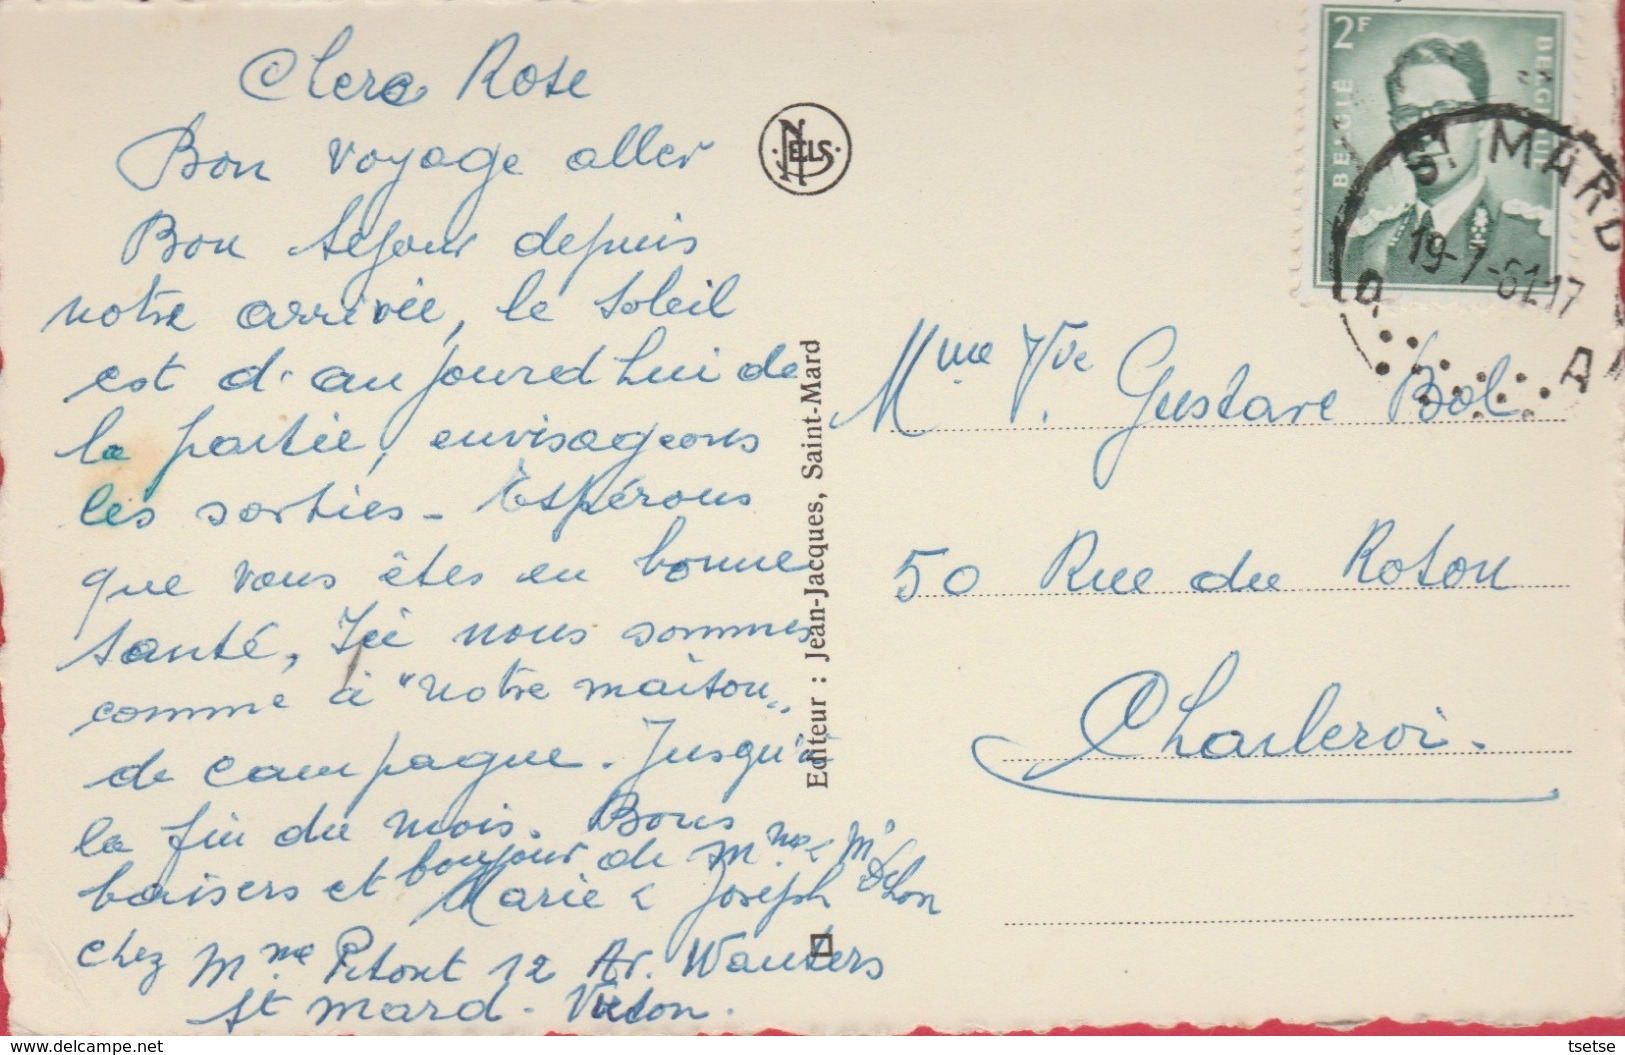 Clere Rose
Bon voyage aller
Bon séjour depuis
notre arrivée, le soleil
est d'aujourd hui de
la partie, envisageons
les sorties - Espérons
que vous êtes en bonne
santé, Ici nous sommes
comme à "notre maison"
de campagne. Jusqu'à
la fin du mois. Bons
baisers et bonjour de Mme & Mr
Marie & Joseph Delhon
chez Mme Pitont 12 Av. Wauters
St mard - Virton.
NELS
Editeur : Jean-Jacques, Saint-Mard
2F
BELGIË
BELGIQUE
ST MARD
19-7-61-17
A
Mme Vve Gustave Bol
50 Rue du Roton
Charleroi.
tsetse
www.delcampe.net